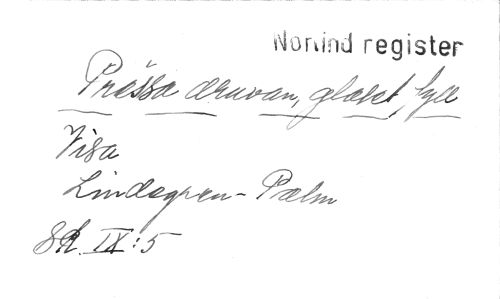 Norlind register
Pressa druvan, glaset fyll
Visa
Lindegren - Palm
SK. IX:5